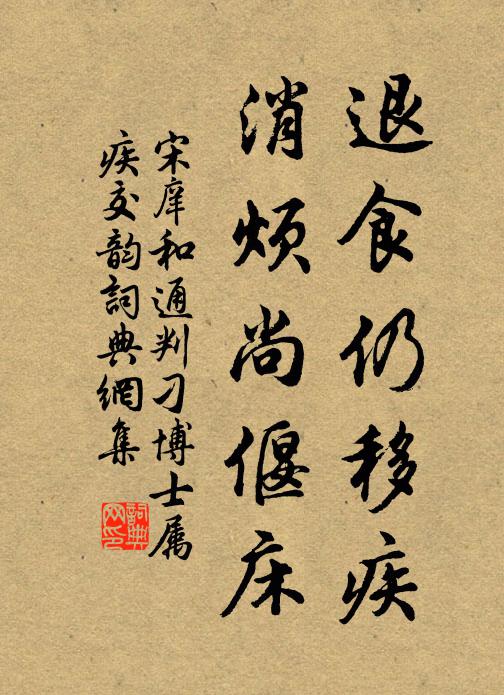 退食仍移疾
消烦尚偃床
宋庠和通判刁博士属
疾交韵詞典網集
詞典网印